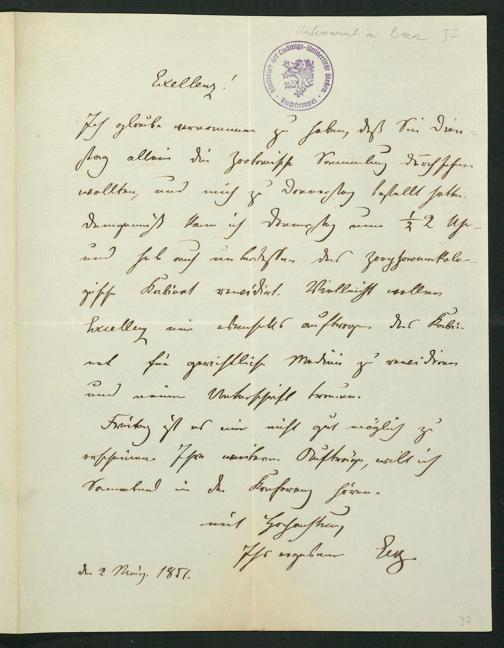 an Baer 57
Bibliothek der Ludwigs-Universität Giessen
Exellenz!
Ich glaube vernommen zu haben, daß Sie Dien-
stag allein die zootomische Sammlung durchsehen
wollten, und mich zu Donnerstag bestellt hatten.
Demgemäß kam ich Donnerstag um ½ 2 Uhr
und hab auch unterdessen das zoopharmakolo-
gische Kabinet revidirt. Vielleicht wollen
Excellenz mir ebenfalls auftragen das Kabi-
net für gerichtliche Medicin zu revidiren
und meiner Unterschrift trauen.
Freitag ist es mir nicht gut möglich zu
erscheinen. Ihre weitern Aufträge, will ich
Sonnabend in der Konferenz hören.
mit Hochachtung
Ihr ergebener
den 2 März. 1851.
97